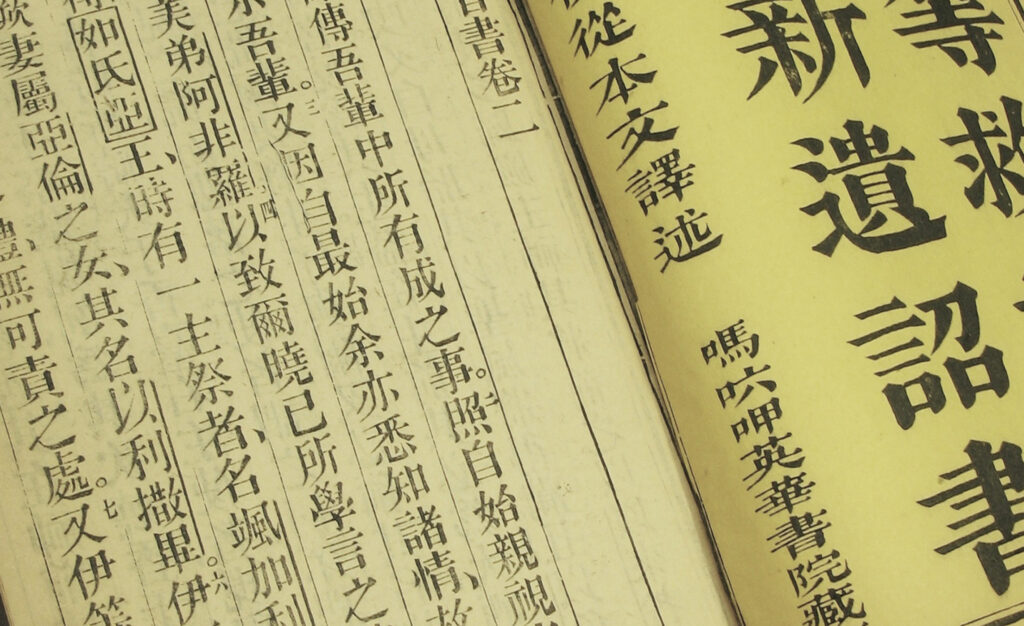 等救
新遺詔書
從本文譯述
嗎𠯋呷英華書院藏
音書卷二
傳吾輩中所有成之事。二照自始親視
吾輩。三又因自最始余亦悉知諸情、故
美弟阿非羅、四以致爾曉已所學言之
如氏亞王、時有一主祭者、名颯加利
妻屬亞倫之女、其名以利撒畢。六伊
無可責之處。七又伊等